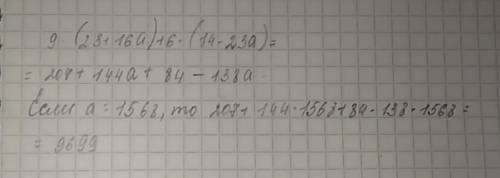 9·(23+16a)+6·(14-23a)=
= 207+144a+84-138a
Если a=1568, то 207+144·1568+84-138·1568=
= 9699